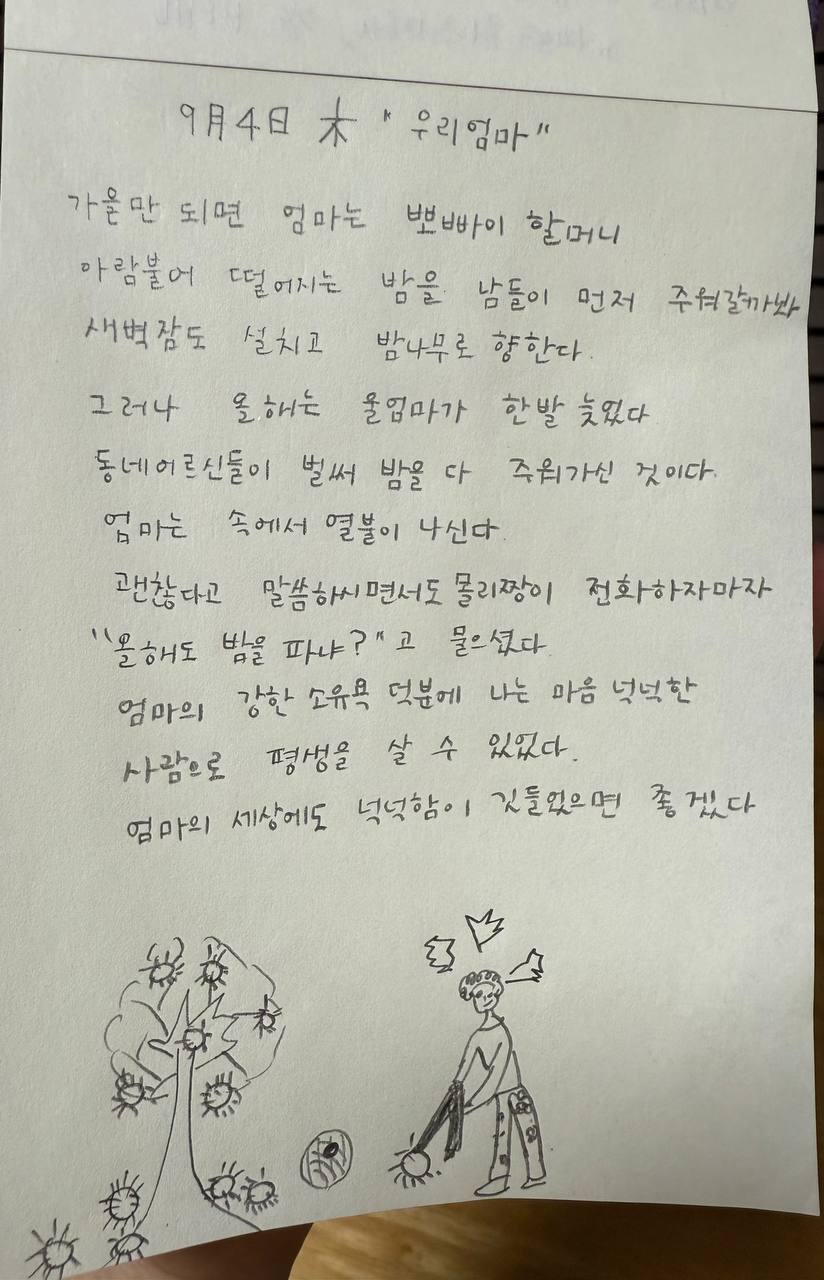 9月4日 木 "우리엄마"
가을만 되면 엄마는 뽀빠이 할머니
아람불어 떨어지는 밤을 남들이 먼저 주워갈까봐
새벽잠도 설치고 밤나무로 향한다.
그러나 올해는 울엄마가 한발 늦었다
동네어르신들이 벌써 밤을 다 주워가신 것이다.
엄마는 속에서 열불이 나신다.
괜찮다고 말씀하시면서도 몰리짱이 전화하자마자
"올해도 밤을 파냐?"고 물으셨다.
엄마의 강한 소유욕 덕분에 나는 마음 넉넉한
사람으로 평생을 살 수 있었다.
엄마의 세상에도 넉넉함이 깃들었으면 좋겠다